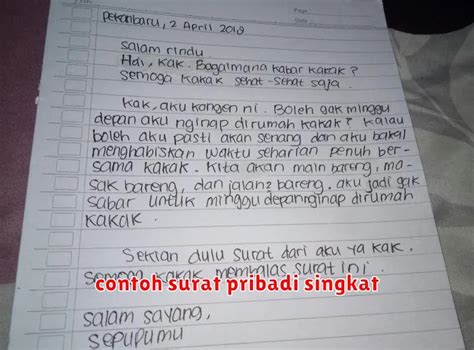 Page :
Pekanbaru, 2 April 2018
Salam rindu
Hai, kak. Bagaimana kabar kakak ?
semoga kakak sehat-sehat saja.
Kak, aku kangen ni. Boleh gak minggu
depan aku nginap dirumah kakak? Kalau
boleh aku pasti akan senang dan aku bakal
menghabiskan waktu seharian penuh ber-
sama kakak. Kita akan main bareng, ma-
sak bareng, dan jalan2 bareng. aku jadi gak
sabar untuk minggu depan nginap dirumah
kakak.
Sekian dulu surat dari aku ya kak.
semoga kakak membalas surat ini.
contoh surat pribadi singkat
salam sayang,
sepupumu